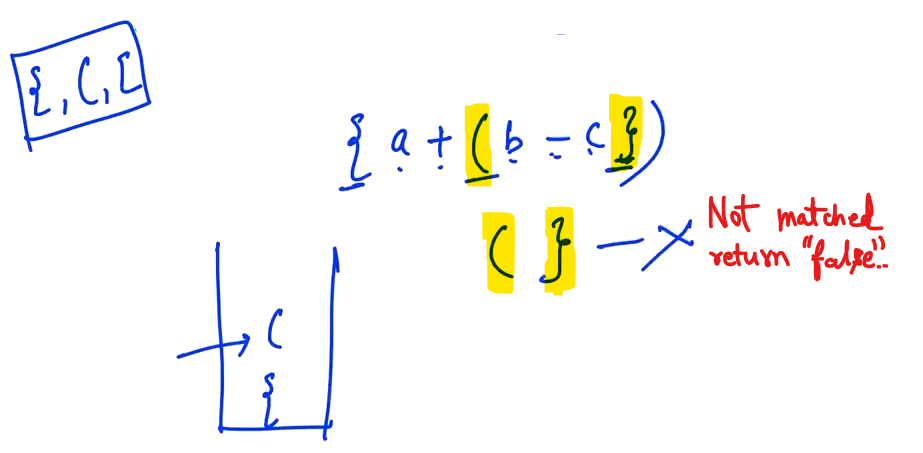 {, (, [
{ a + ( b - c } )
( } — × Not matched
return "false"..
(
{